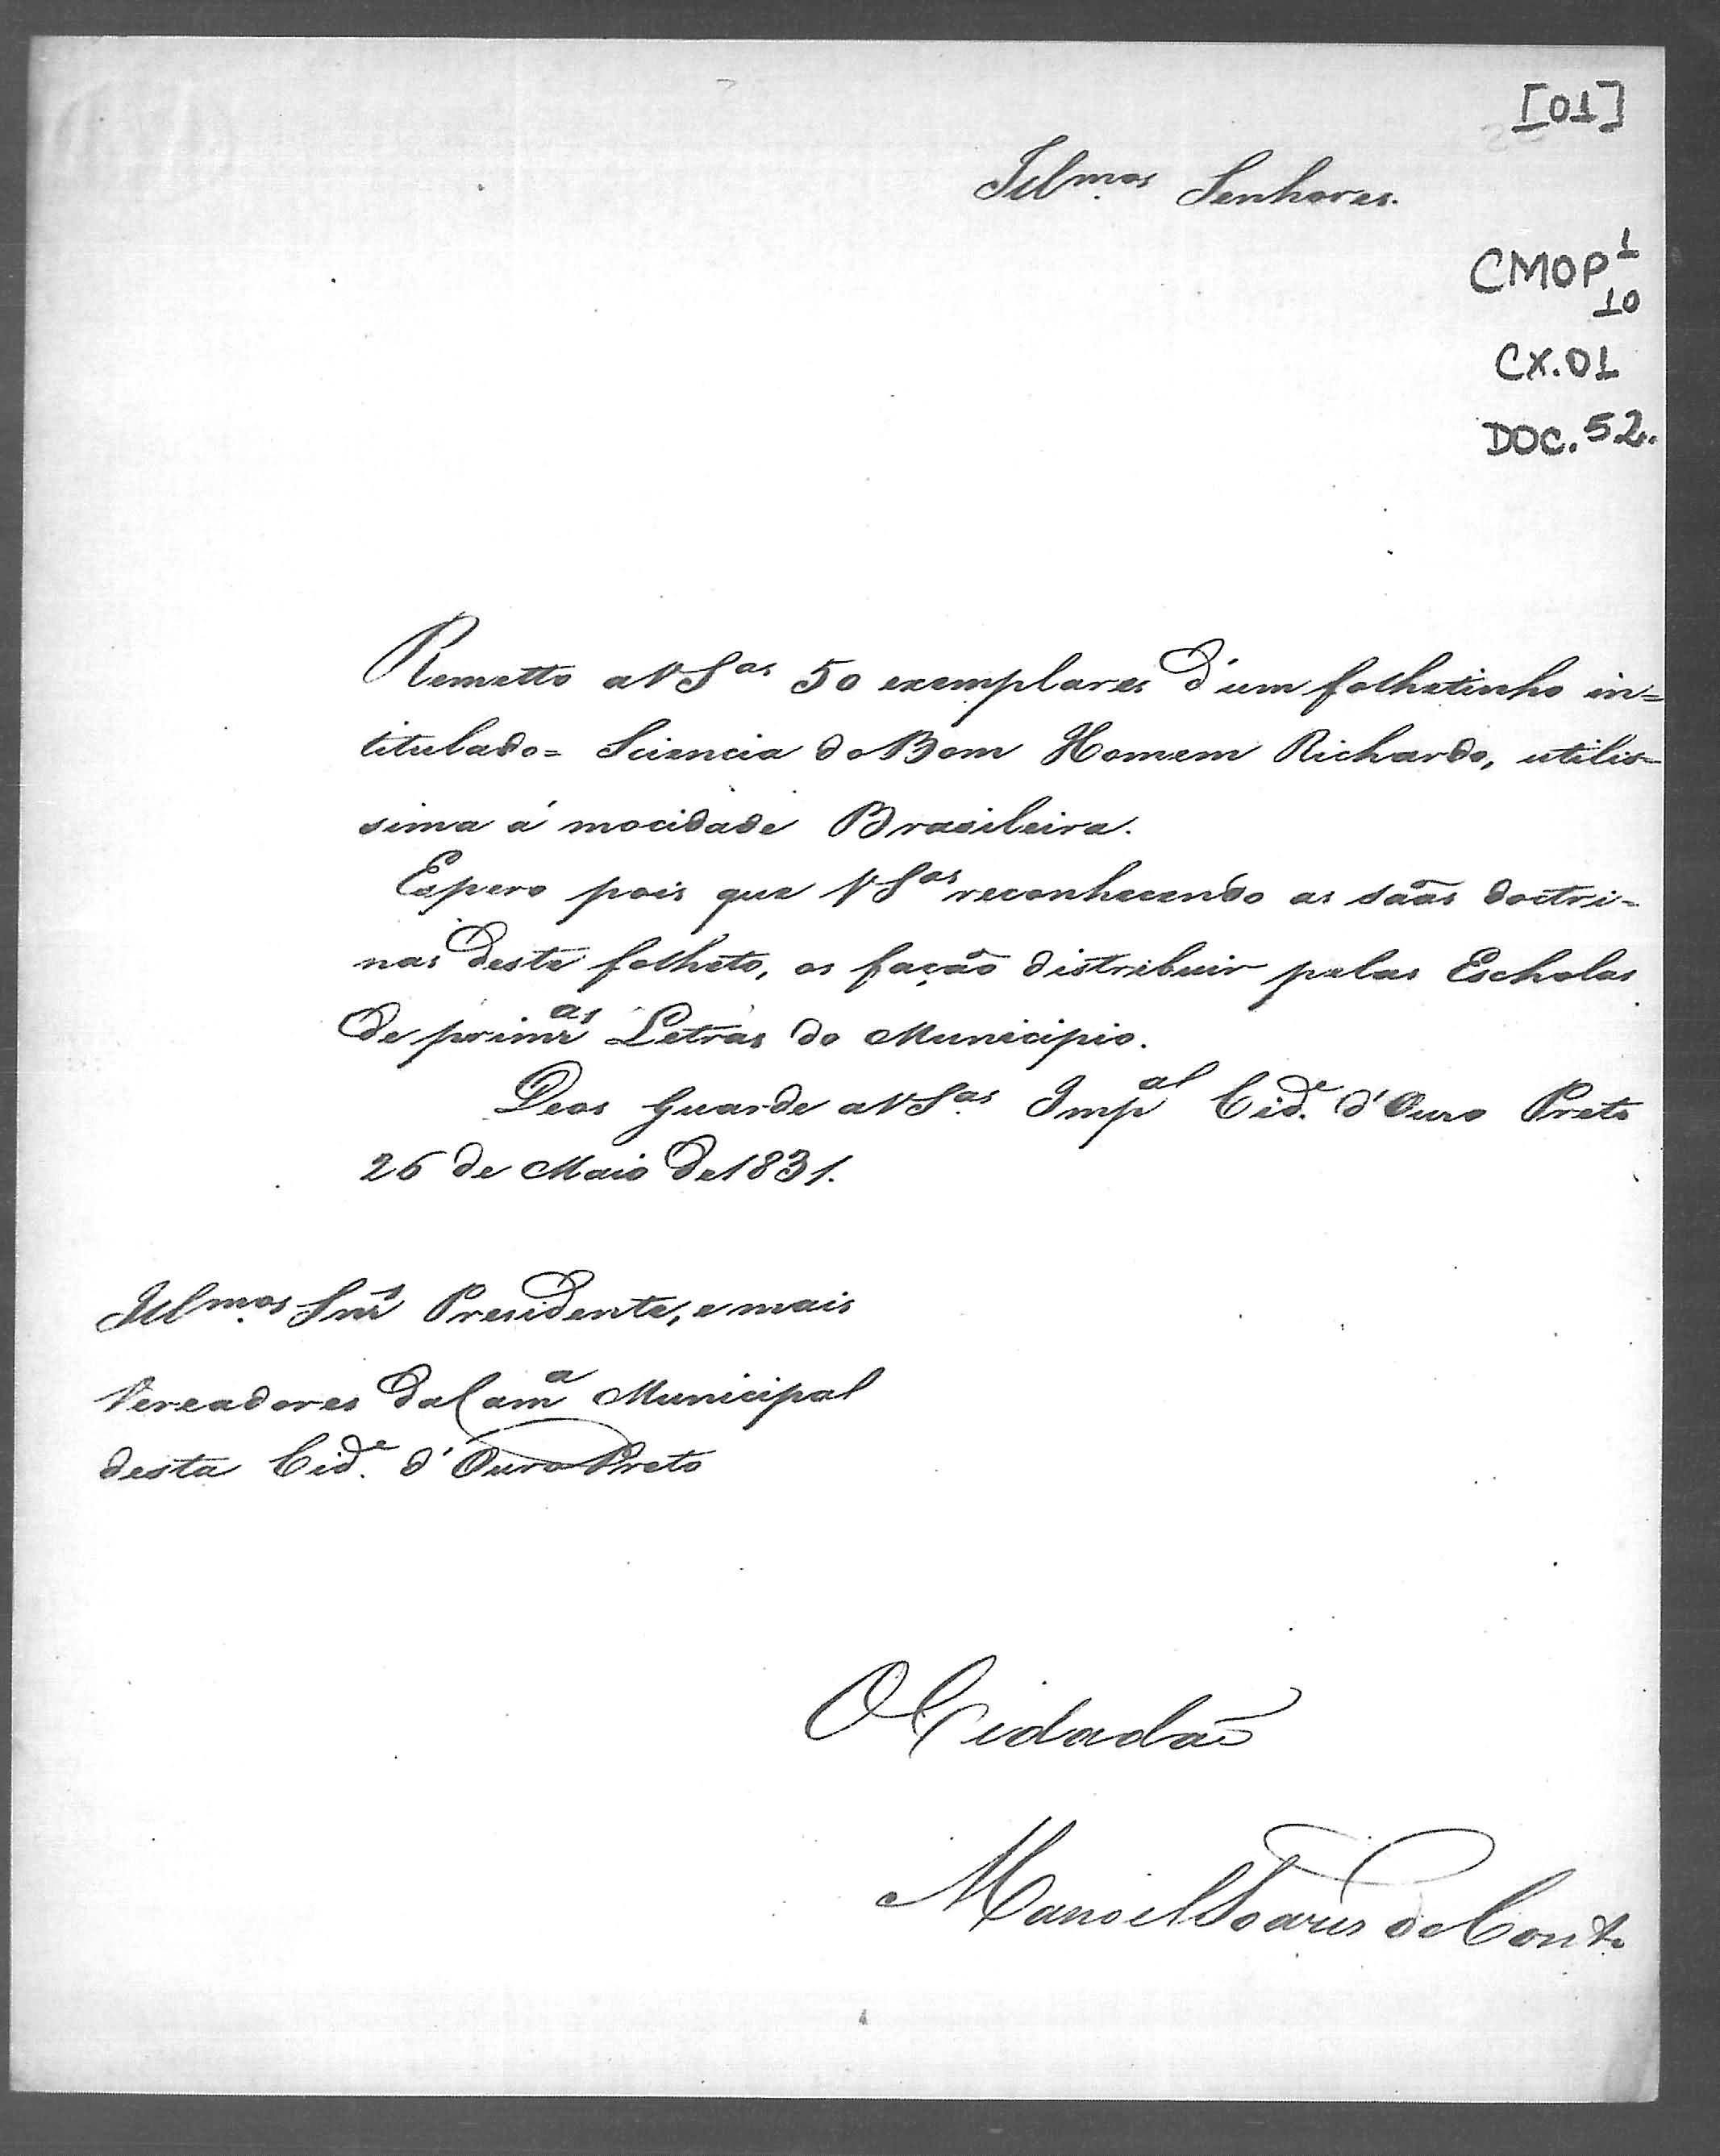 [01]
Illmos Senhores.
CMOP 1
10
CX.01
DOC. 52.
Remetto a V Sas 50 exemplares d'um folhetinho in=
titulado= Sciencia do Bom Homem Richardo, utilis=
sima á mocidade Brasileira.
Espero pois que V Sas reconhecendo as sãas doctri=
nas deste folheto, os fação distribuir pelas Escholas
de primras Letras do Municipio.
Deos Guarde a V Sas. Impal Cide. d'Ouro Preto
26 de Maio de 1831.
Illmos Snrs Presidente, e mais
Vereadores da Cama Municipal
desta Cide. d'Ouro Preto
O Cidadão
Manoel Soares do Couto